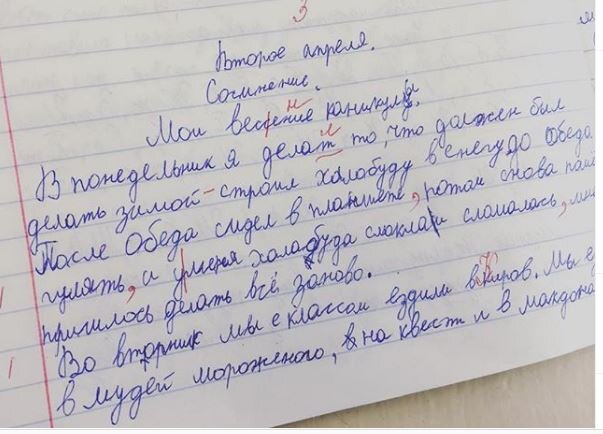 3
Второе апреля.
Сочинение.
Мои весение каникулы.
В понедельник я делат то, что должен был
делать зимой - строил халабуду в снегу до обеда.
После Обеда сидел в планшете, потом снова пошёл
гулять, а у меня халабуда сломалась,
пришлось делать всё заново.
Во вторник мы с классом ездили в киров. Мы е
в музей мороженого, на квест и в макдона